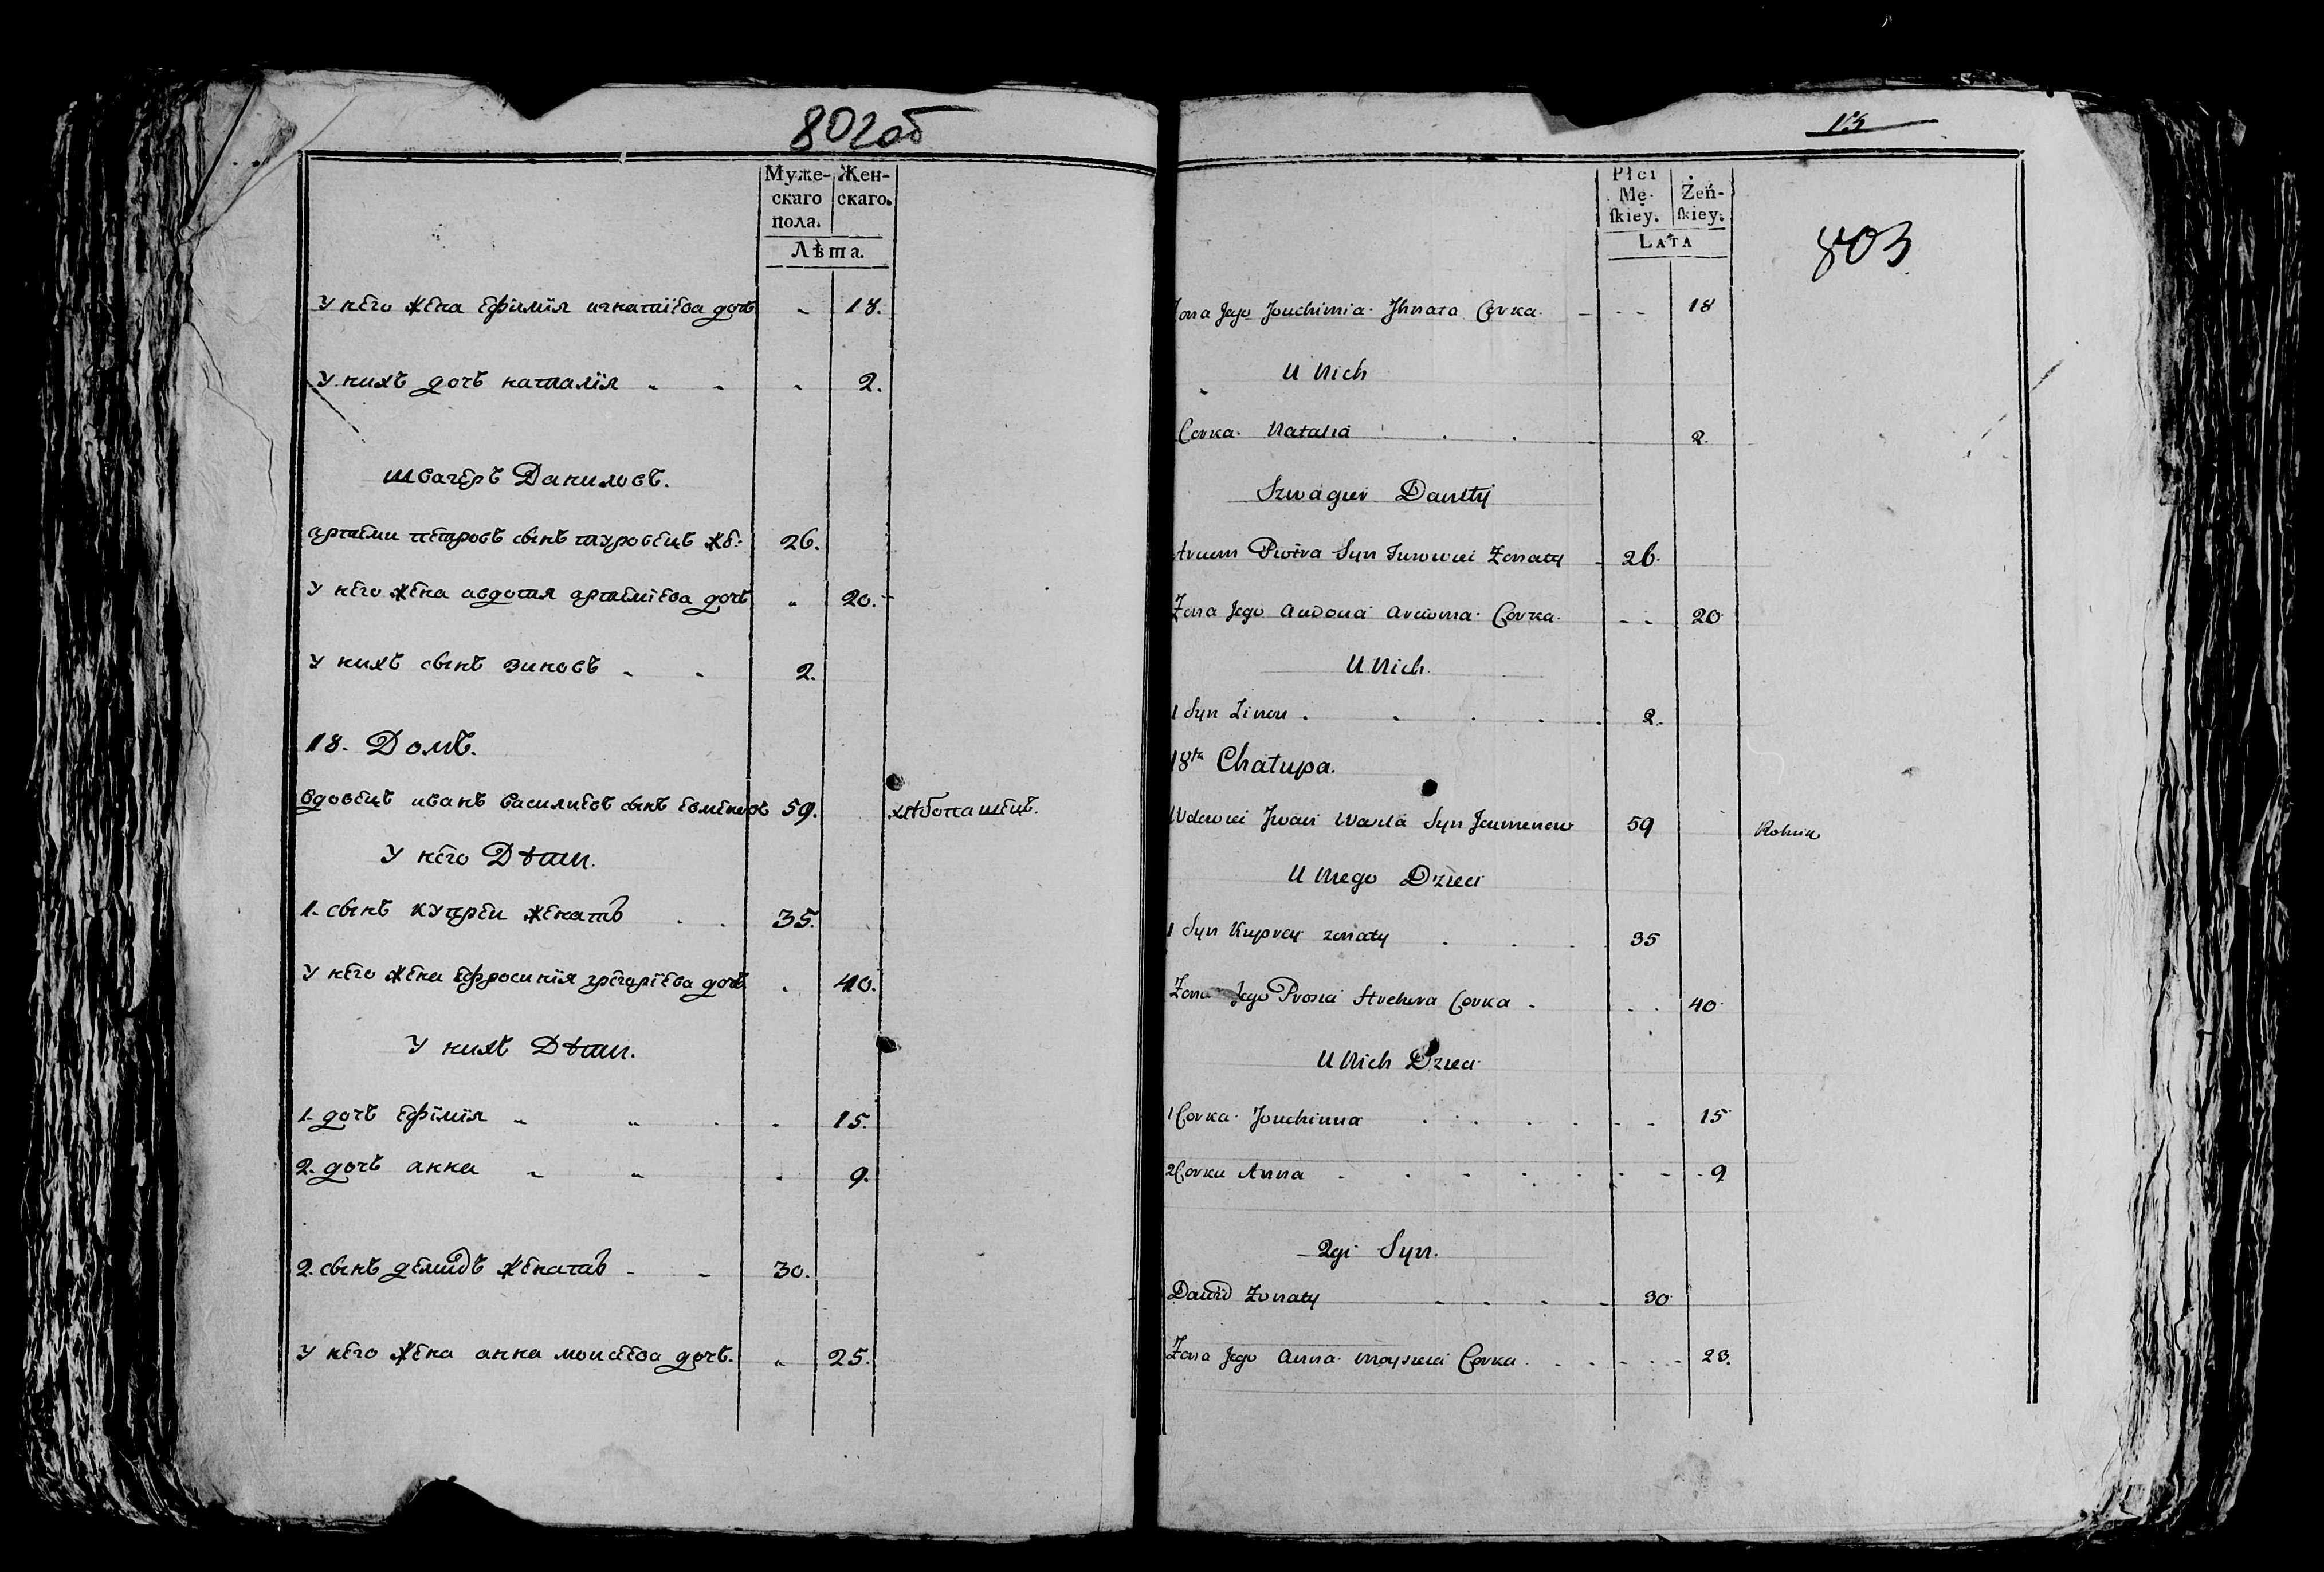 802об
Муже-
скаго
пола.
Жен-
скаго.
Лѣта.
У него жена ефимїя игнатїева дочь - 18.
У нихъ дочь наталїя - - - 2.
швагеръ Даниловъ.
артеми петровъ сынъ туровецъ жо: 26.
У него жена авдотя артемїева дочь " 20.
У нихъ сынъ зиновъ - - 2.
18. Домъ.
вдовецъ иванъ василиевъ сынъ евменовъ 59. хлѣбопашецъ.
У него Дѣти.
1. сынъ купреи женатъ . . 35.
У него жена ефросинїя григорїева дочь . 40.
У нихъ Дѣти.
1. дочь ефимїя - " . . 15.
2. дочь анна - " . 9.
2. сынъ демидъ женатъ - - 30.
У него жена анна моисеева дочь. " 25.
13
803
Płci
Mę-
ſkiey.
Zeń-
ſkiey.
LATA
Zona Jego Jouchimia Jhnata Corka - - - 18
U Nich
Corka Natalia . . 2.
Szwagier Daniły
Piotra Syn Turowiec Zonaty - 26.
Zona Jego Audocia Arcioma Corka - - 20
U Nich.
1 Syn Zinou . . . . . 2.
18ta Chałupa.
Wdowiec Jwan Wasila Syn Jeumenow 59 Rolnik
U Niego Dzieci
1 Syn Kuprey zonaty . . . 35
Zona Jego Prosia Corka - . . 40
U Nich Dzieci
1 Corka Jouchimia . . . . . - - 15
2 Corka Anna . . . . . . - - 9
2gi Syn.
Dawid Zonaty - - - - 30
Zona Jego Anna Moysieia Corka . . . - - - 23.